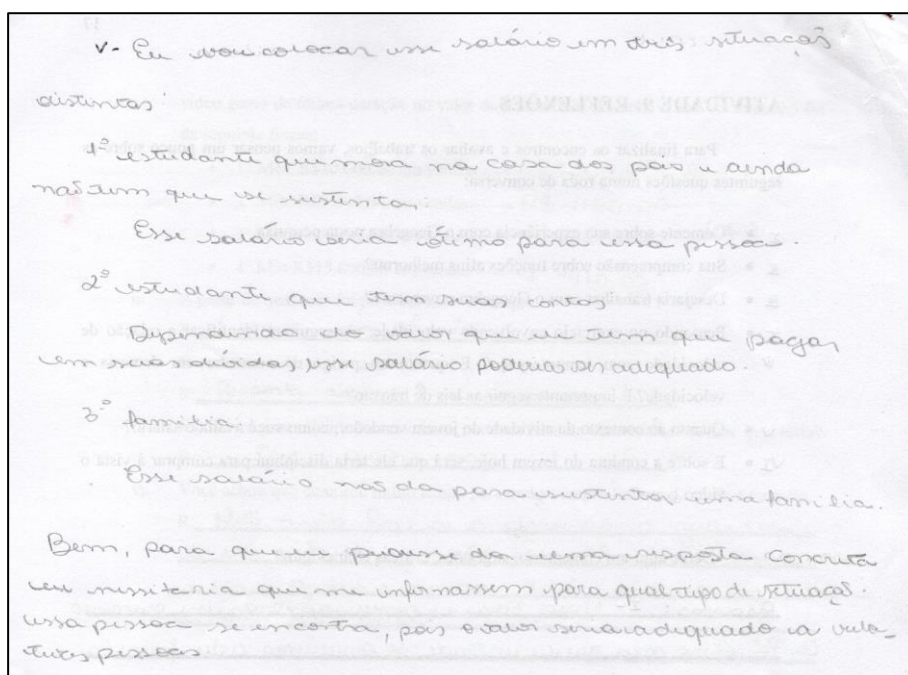 V- Eu vou colocar esse salário em três situaçãs
distintas
1º estudante que mora na casa dos pais e ainda
não tem que se sustentar.
Esse salário seria ótimo para essa pessoa.
2º estudante que tem suas contas
Dependendo do valor que ele tem que pagar
em suas dívidas esse salário poderia ser adequado.
3º família.
Esse salário não da para sustentar uma família.
Bem, para que eu pudesse da uma resposta concreta
eu nessitaria que me informassem para qual tipo de situaçã.
essa pessoa se encontra, pois o valor seria adequado a
pessoas